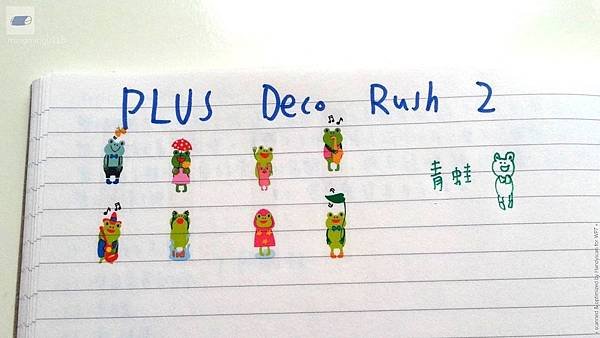 PLUS Deco Rush 2
青蛙
mingming0116
scanned & optimized by Handyscan for WP7